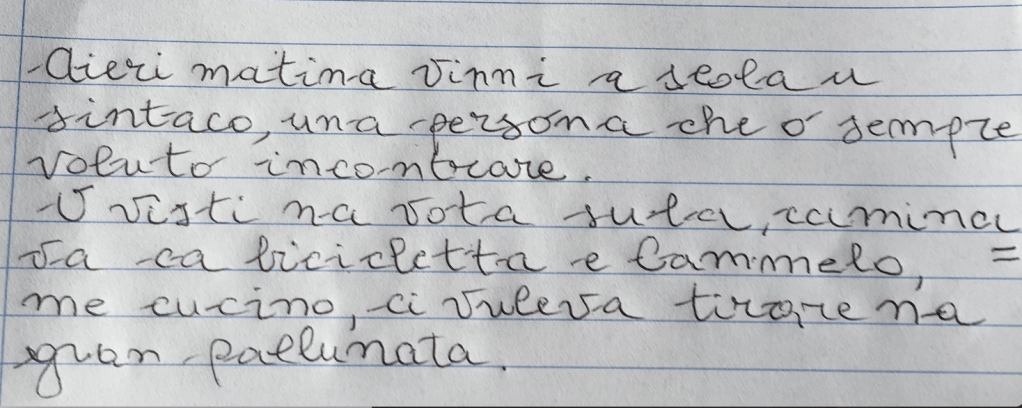 Aieri matina vinni a scola u
sintaco, una persona che o sempre
voluto incontrare.
U visti na vota sula, camina
va ca bicicletta e Cammelo, =
me cucino, ci vuleva tirare na
gran pallunata.